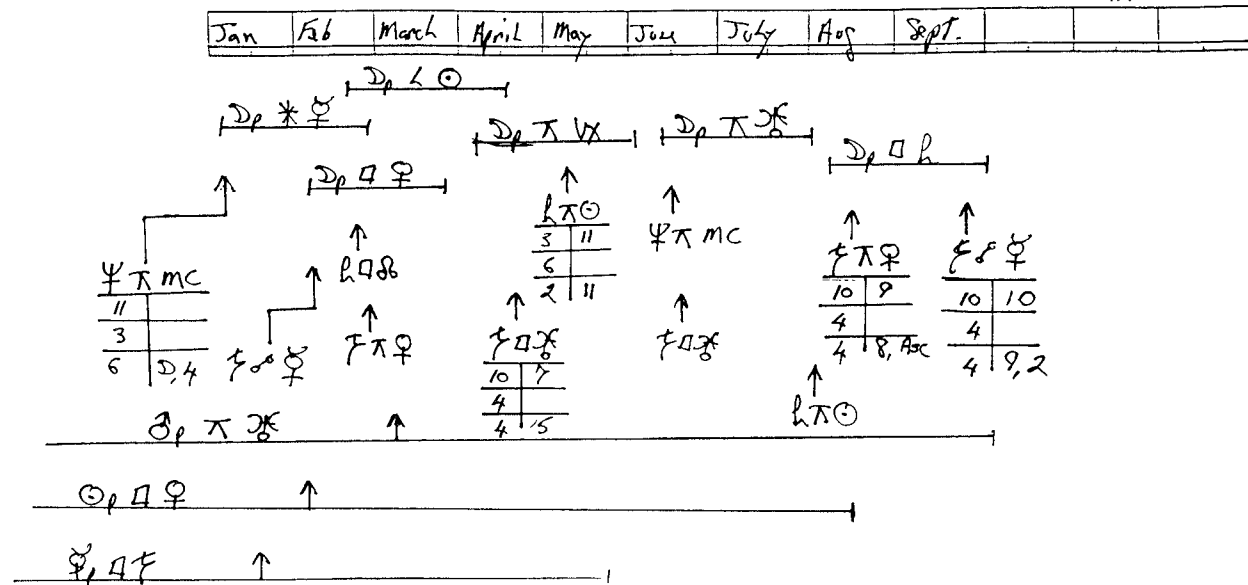 Jan Feb March April May June July Aug Sept.
☽p ∠ ☉
☽p ⚹ ☿
☽p ⚻ Vx
☽p ⚻ ♅
☽p □ ♄
☽p □ ♀
♄ ⚻ ☉
3 11
6
2 11
♆ ⚻ MC
♆ ⚻ MC
11
3
6 ☽, 4
♄ □ ☊
☍ ☿
⚻ ♀
□ ♅
10 7
4
4 5
□ ♅
⚻ ♀
10 9
4
4 8, Asc
☍ ☿
10 10
4
4 9, 2
♄ ⚻ ☉
♂p ⚻ ♅
☉p □ ♀
☿p □